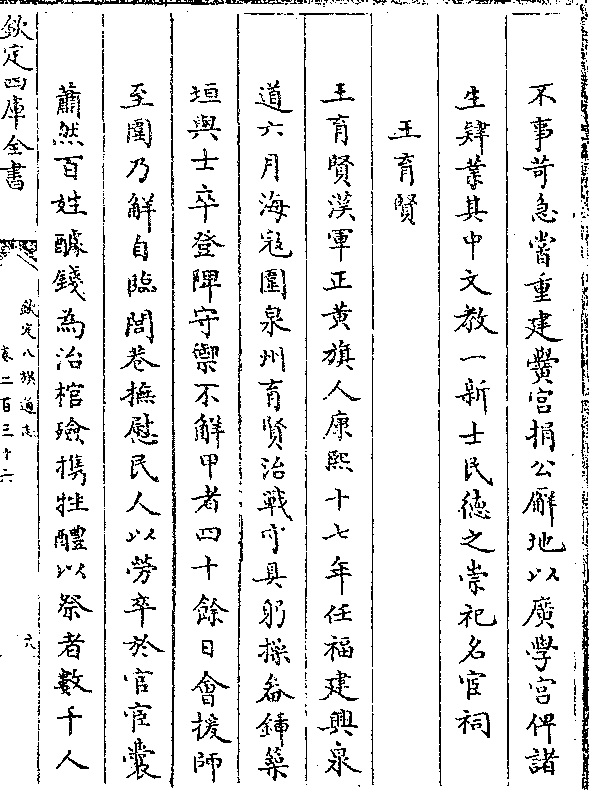 不事苛急嘗重建黌宫捐公廨地以廣學宫俾諸
生肄業其中文教一新士民德之崇祀名宦祠
王育賢
王育賢漢軍正黄旗人康熙十七年任福建興泉
道六月海寇圍泉州育賢治戰守具躬操畚鍤築
垣與士卒登陴守禦不解甲者四十餘日會援師
至圍乃解自臨閭巷撫慰民人以勞卒於官宦囊
蕭然百姓醵錢為治棺殮携牲醴以祭者數千人
欽定四庫全書
欽定八旗通志
卷二百三十六
六